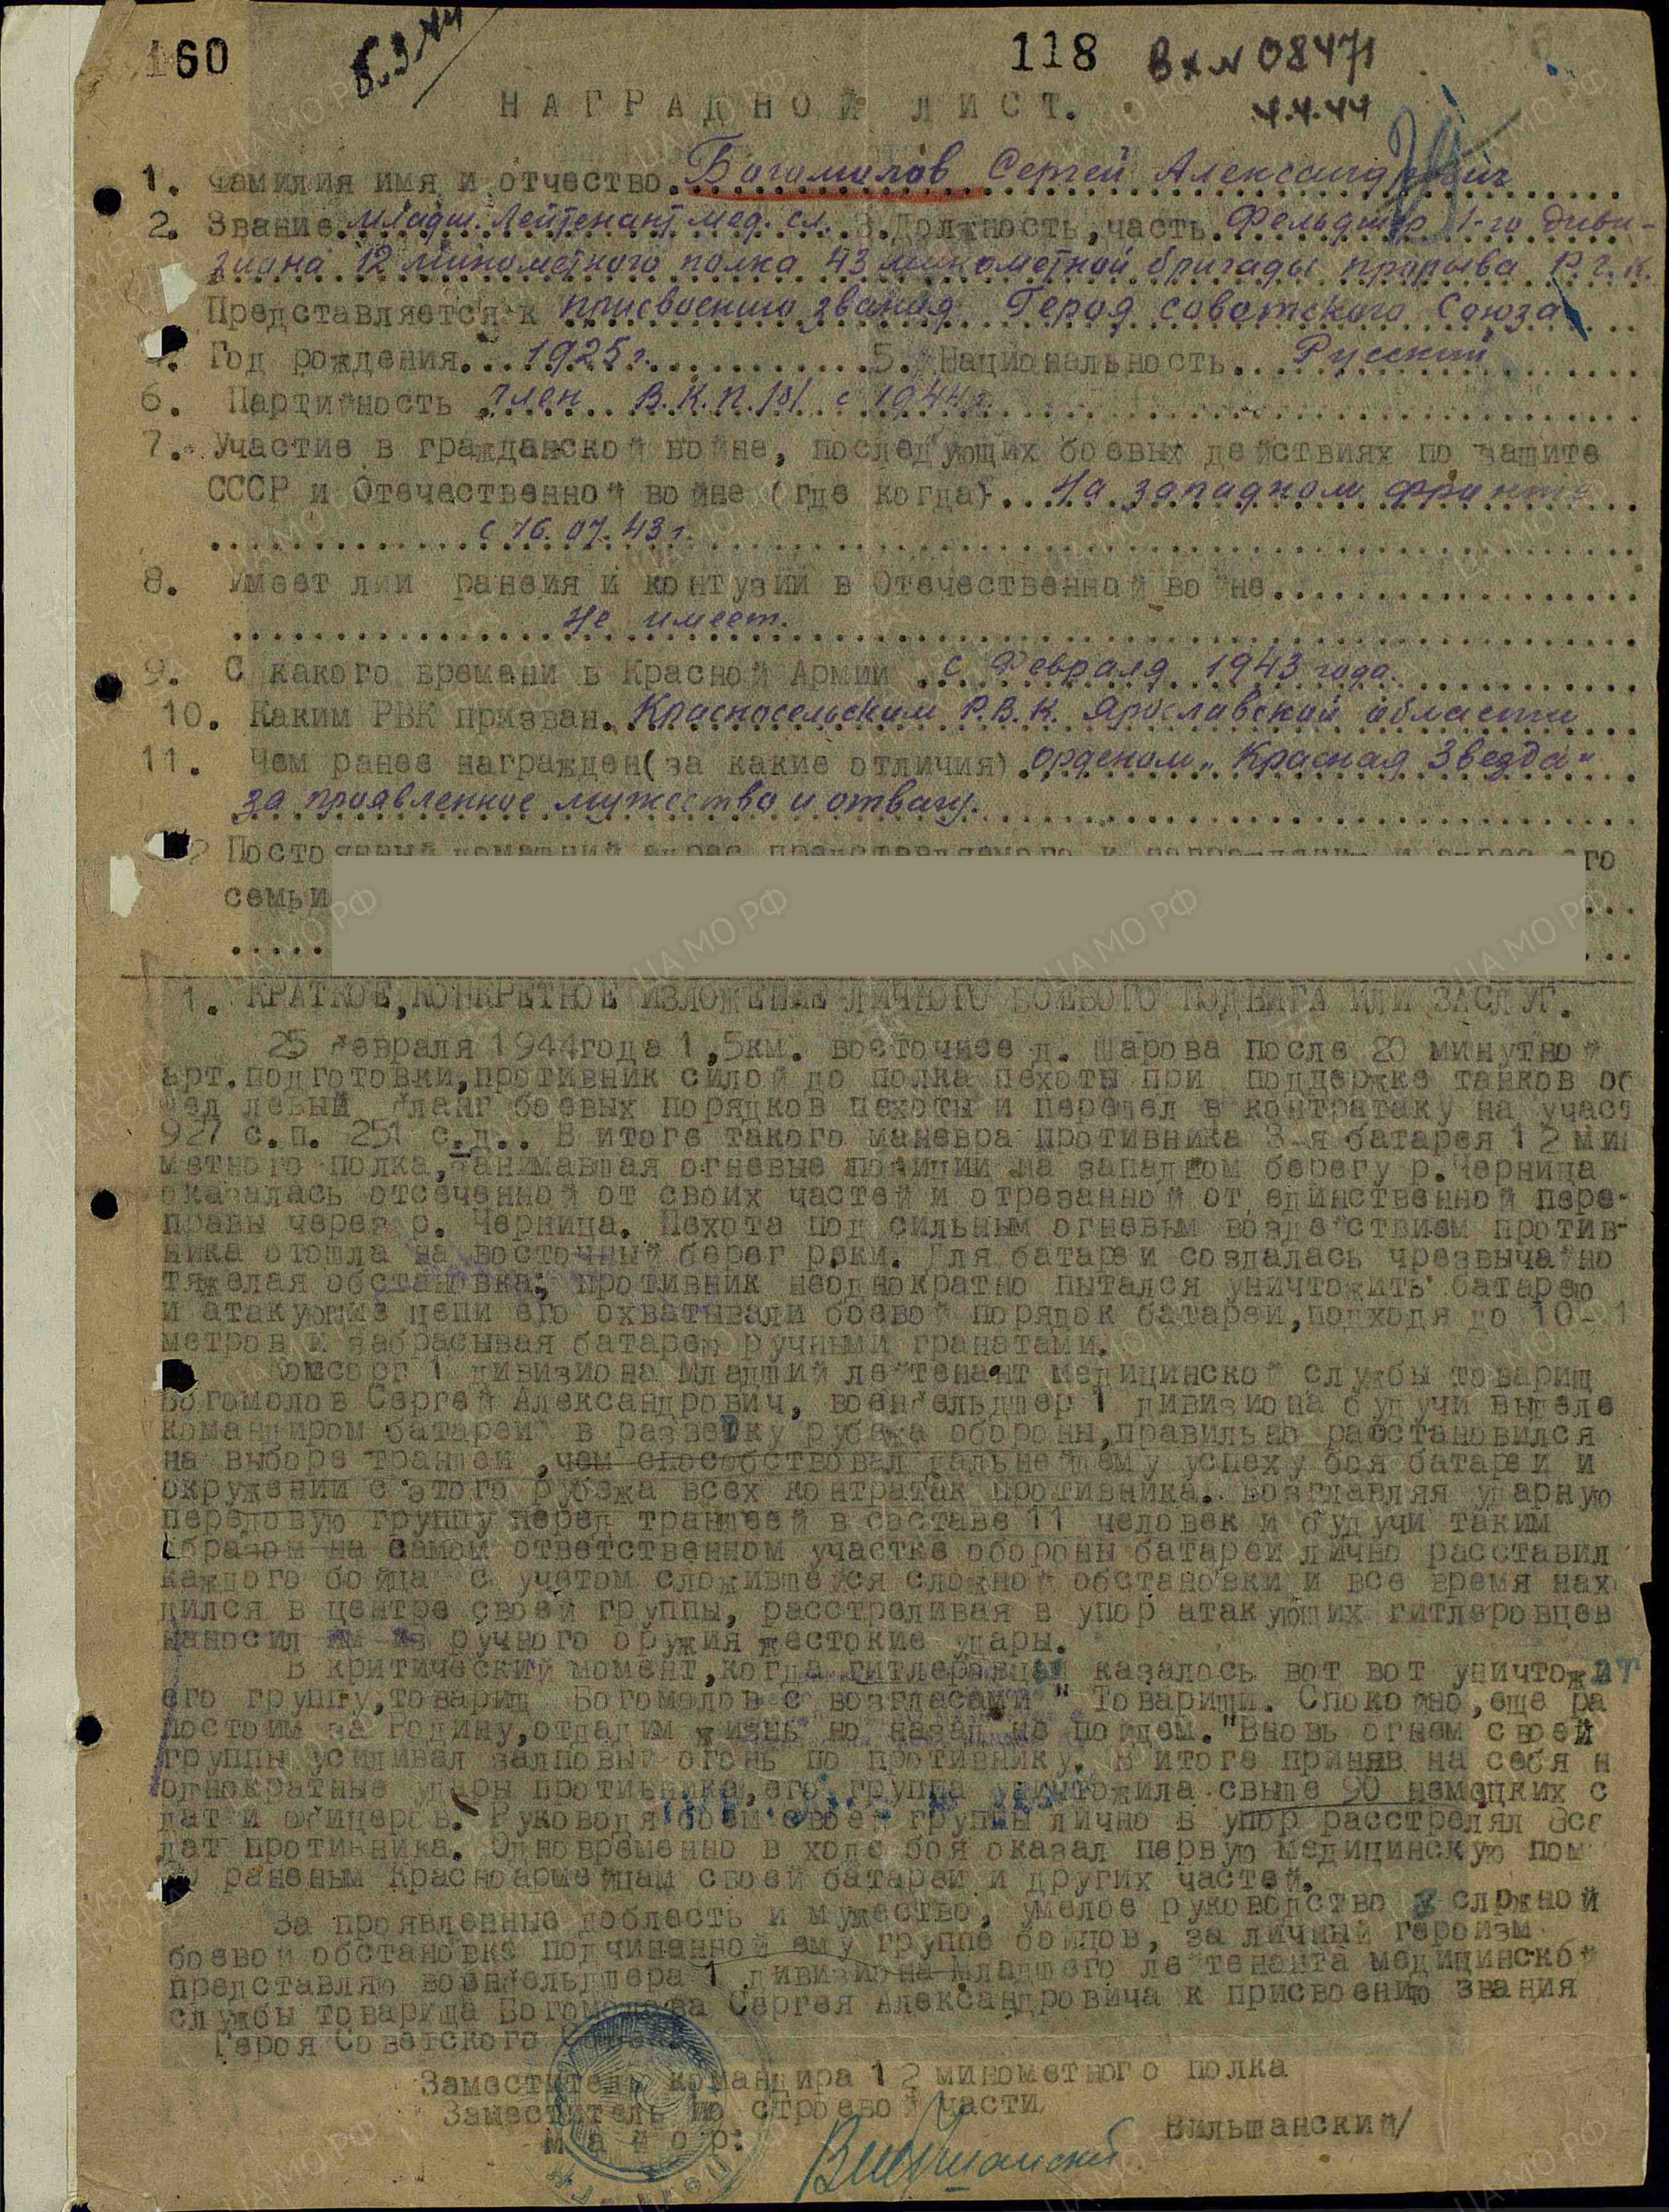 160
118 Вх № 08471
4.4.44
НАГРАДНОЙ ЛИСТ.
1. Фамилия имя и отчество Богомолов Сергей Александрович
2. Звание младш. Лейтенант мед. сл. 3. Должность, часть. Фельдшер 1-го диви-
зиона 12 минометного полка 43 минометной бригады прорыва Р.Г.К.
Представляется к присвоению звания Героя советского Союза
Год рождения. 1925 г. 5. Национальность. Русский
6. Партийность член В.К.П./б/ с 1944 г.
7. Участие в гражданской войне, последующих боевых действиях по защите
СССР и Отечественной войне (где когда). На западном фронте
с 16.07.43 г.
8. Имеет лии ранеия и контузии в Отечественной войне
Не имеет.
9. С какого времени в Красной Армии с Февраля 1943 года.
10. Каким РВК призван. Красносельским Р.В.К. Ярославской области
11. Чем ранее награжден(за какие отличия) орденом „Красная Звезда"
за проявленное мужество и отвагу.
Постоянный домашний адрес представляемого к
семьи
1. КРАТКОЕ, КОНКРЕТНОЕ ИЗЛОЖЕНИЕ ЛИЧНОГО БОЕВОГО ПОДВИГА ИЛИ ЗАСЛУГ.
25 февраля 1944года 1,5км. восточнее д. Шарова после 20 минутной
арт.подготовки,противник силой до полка пехоты при поддержке танков об
шел левый фланг боевых порядков пехоты и перешел в контратаку на участ
927 с.п. 251 с.д.. В итоге такого маневра противника 3-я батарея 12 мин
метного полка, занимавшая огневые позиции на западном берегу р.Черница
оказалась отсеченной от своих частей и отрезанной от единственной пере-
правы через р. Черница. Пехота под сильным огневым воздействием против-
ника отошла на восточный берег реки. Для батареи создалась чрезвычайно
тяжелая обстановка; противник неоднократно пытался уничтожить батарею
и атакующие цепи его охватывали боевой порядок батареи,подходя до 10-1
метров и забрасывая батарею ручными гранатами.
Комсорг 1 дивизиона младший лейтенант медицинской службы товарищ
Богомолов Сергей Александрович, военфельдшер 1 дивизиона будучи выделе
командиром батареи в разведку рубежа обороны,правильно расстановился
на выборе траншеи ,чем способствовал дальнейшему успеху боя батареи и
окружении с этого рубежа всех контратак противника. Возглавляя ударную
передовую группу перед траншеей в составе 11 человек и будучи таким
образом на самом ответственном участке обороны батареи лично расставил
каждого бойца с учетом сложившейся сложной обстановки и все время нах
дился в центре своей группы, расстреливая в упор атакующих гитлеровцев
наносил им из ручного оружия жестокие удары.
В критический момент,когда гитлеровцы казалось вот вот уничтожат
его группу,товарищ Богомолов с возгласами " Товарищи. Спокойно,еще ра
постоим за Родину,отдадим жизнь но назад не пойдем."Вновь огнем своей
группы усиливал залповый огонь по противнику. В итоге приняв на себя н
однократные удары противника,его группа уничтожила свыше 90 немецких с
дат и офицеров. Руководя боем своей группы лично в упор расстрелял
дат противника. Одновременно в ходе боя оказал первую медицинскую пом
раненым Красноармейцам своей батареи и других частей.
За проявленные доблесть и мужество, умелое руководство в сложной
боевой обстановке подчиненной ему группе бойцов, за личный героизм
представляю военфельдшера 1 дивизиона младшего лейтенанта медицинской
службы товарища Богомолова Сергея Александровича к присвоению звания
Героя Советского Союза.
Заместитель командира 12 минометного полка
Заместитель по строевой части
Майор: Вильшанский/